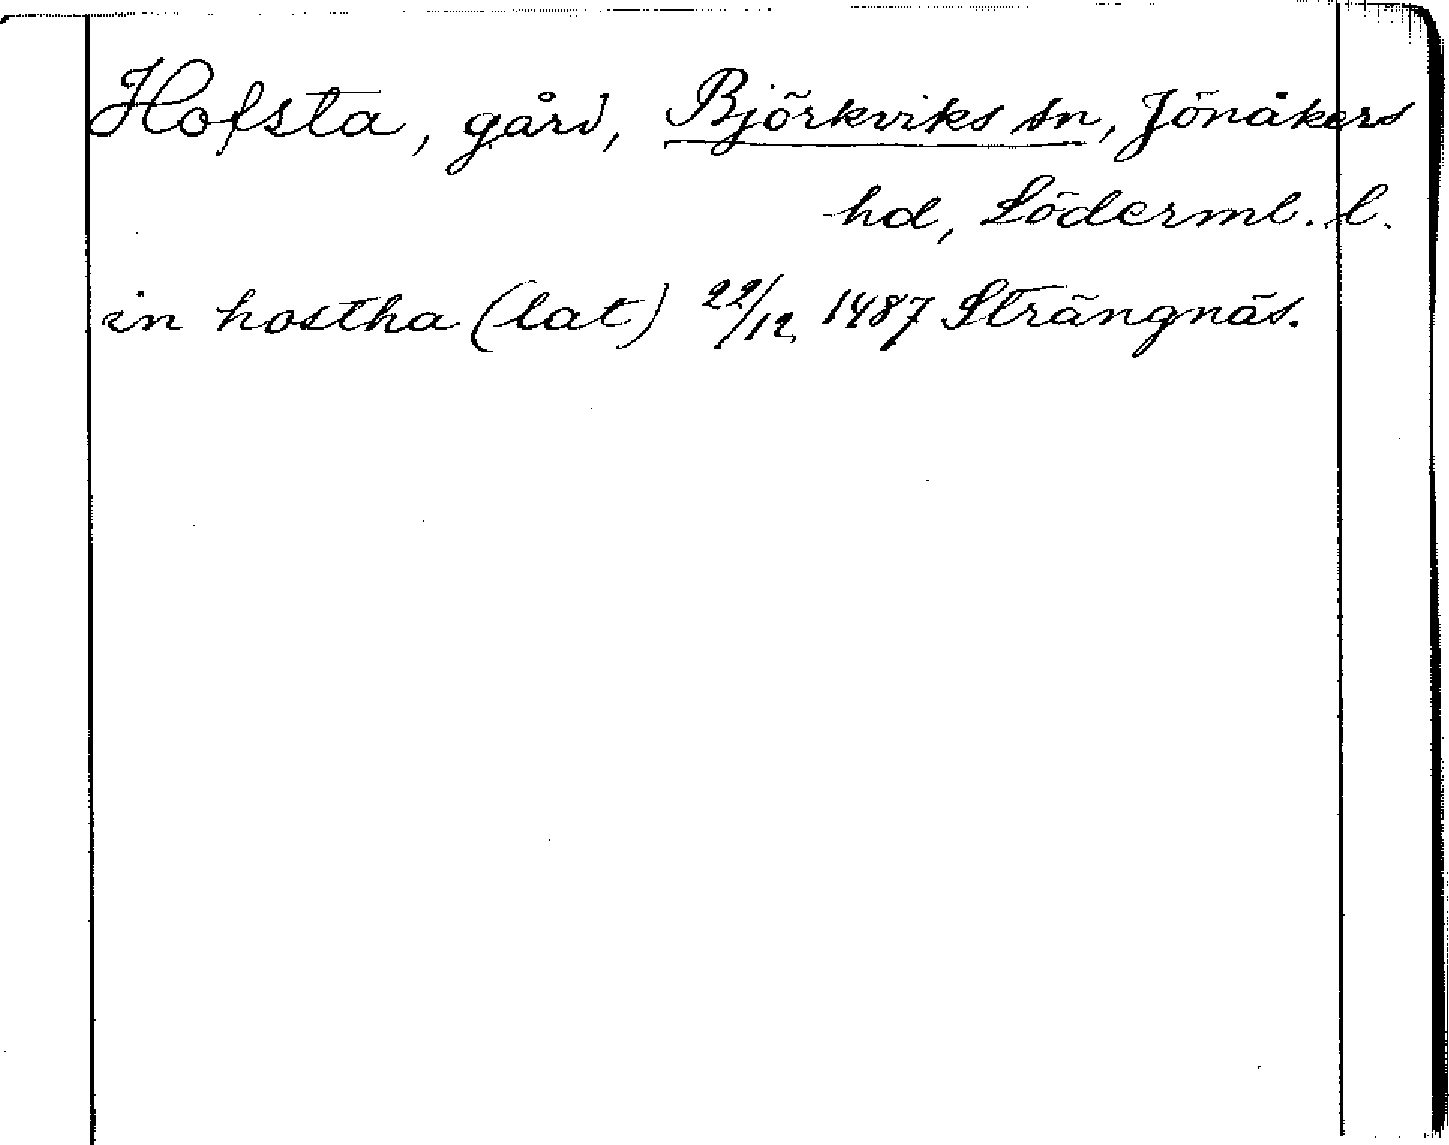 Hofsta, gård, Björkviks sn, Jönåkers
hd, Söderml. l.
in hostha (lat) 22/12 1487 Strängnäs.